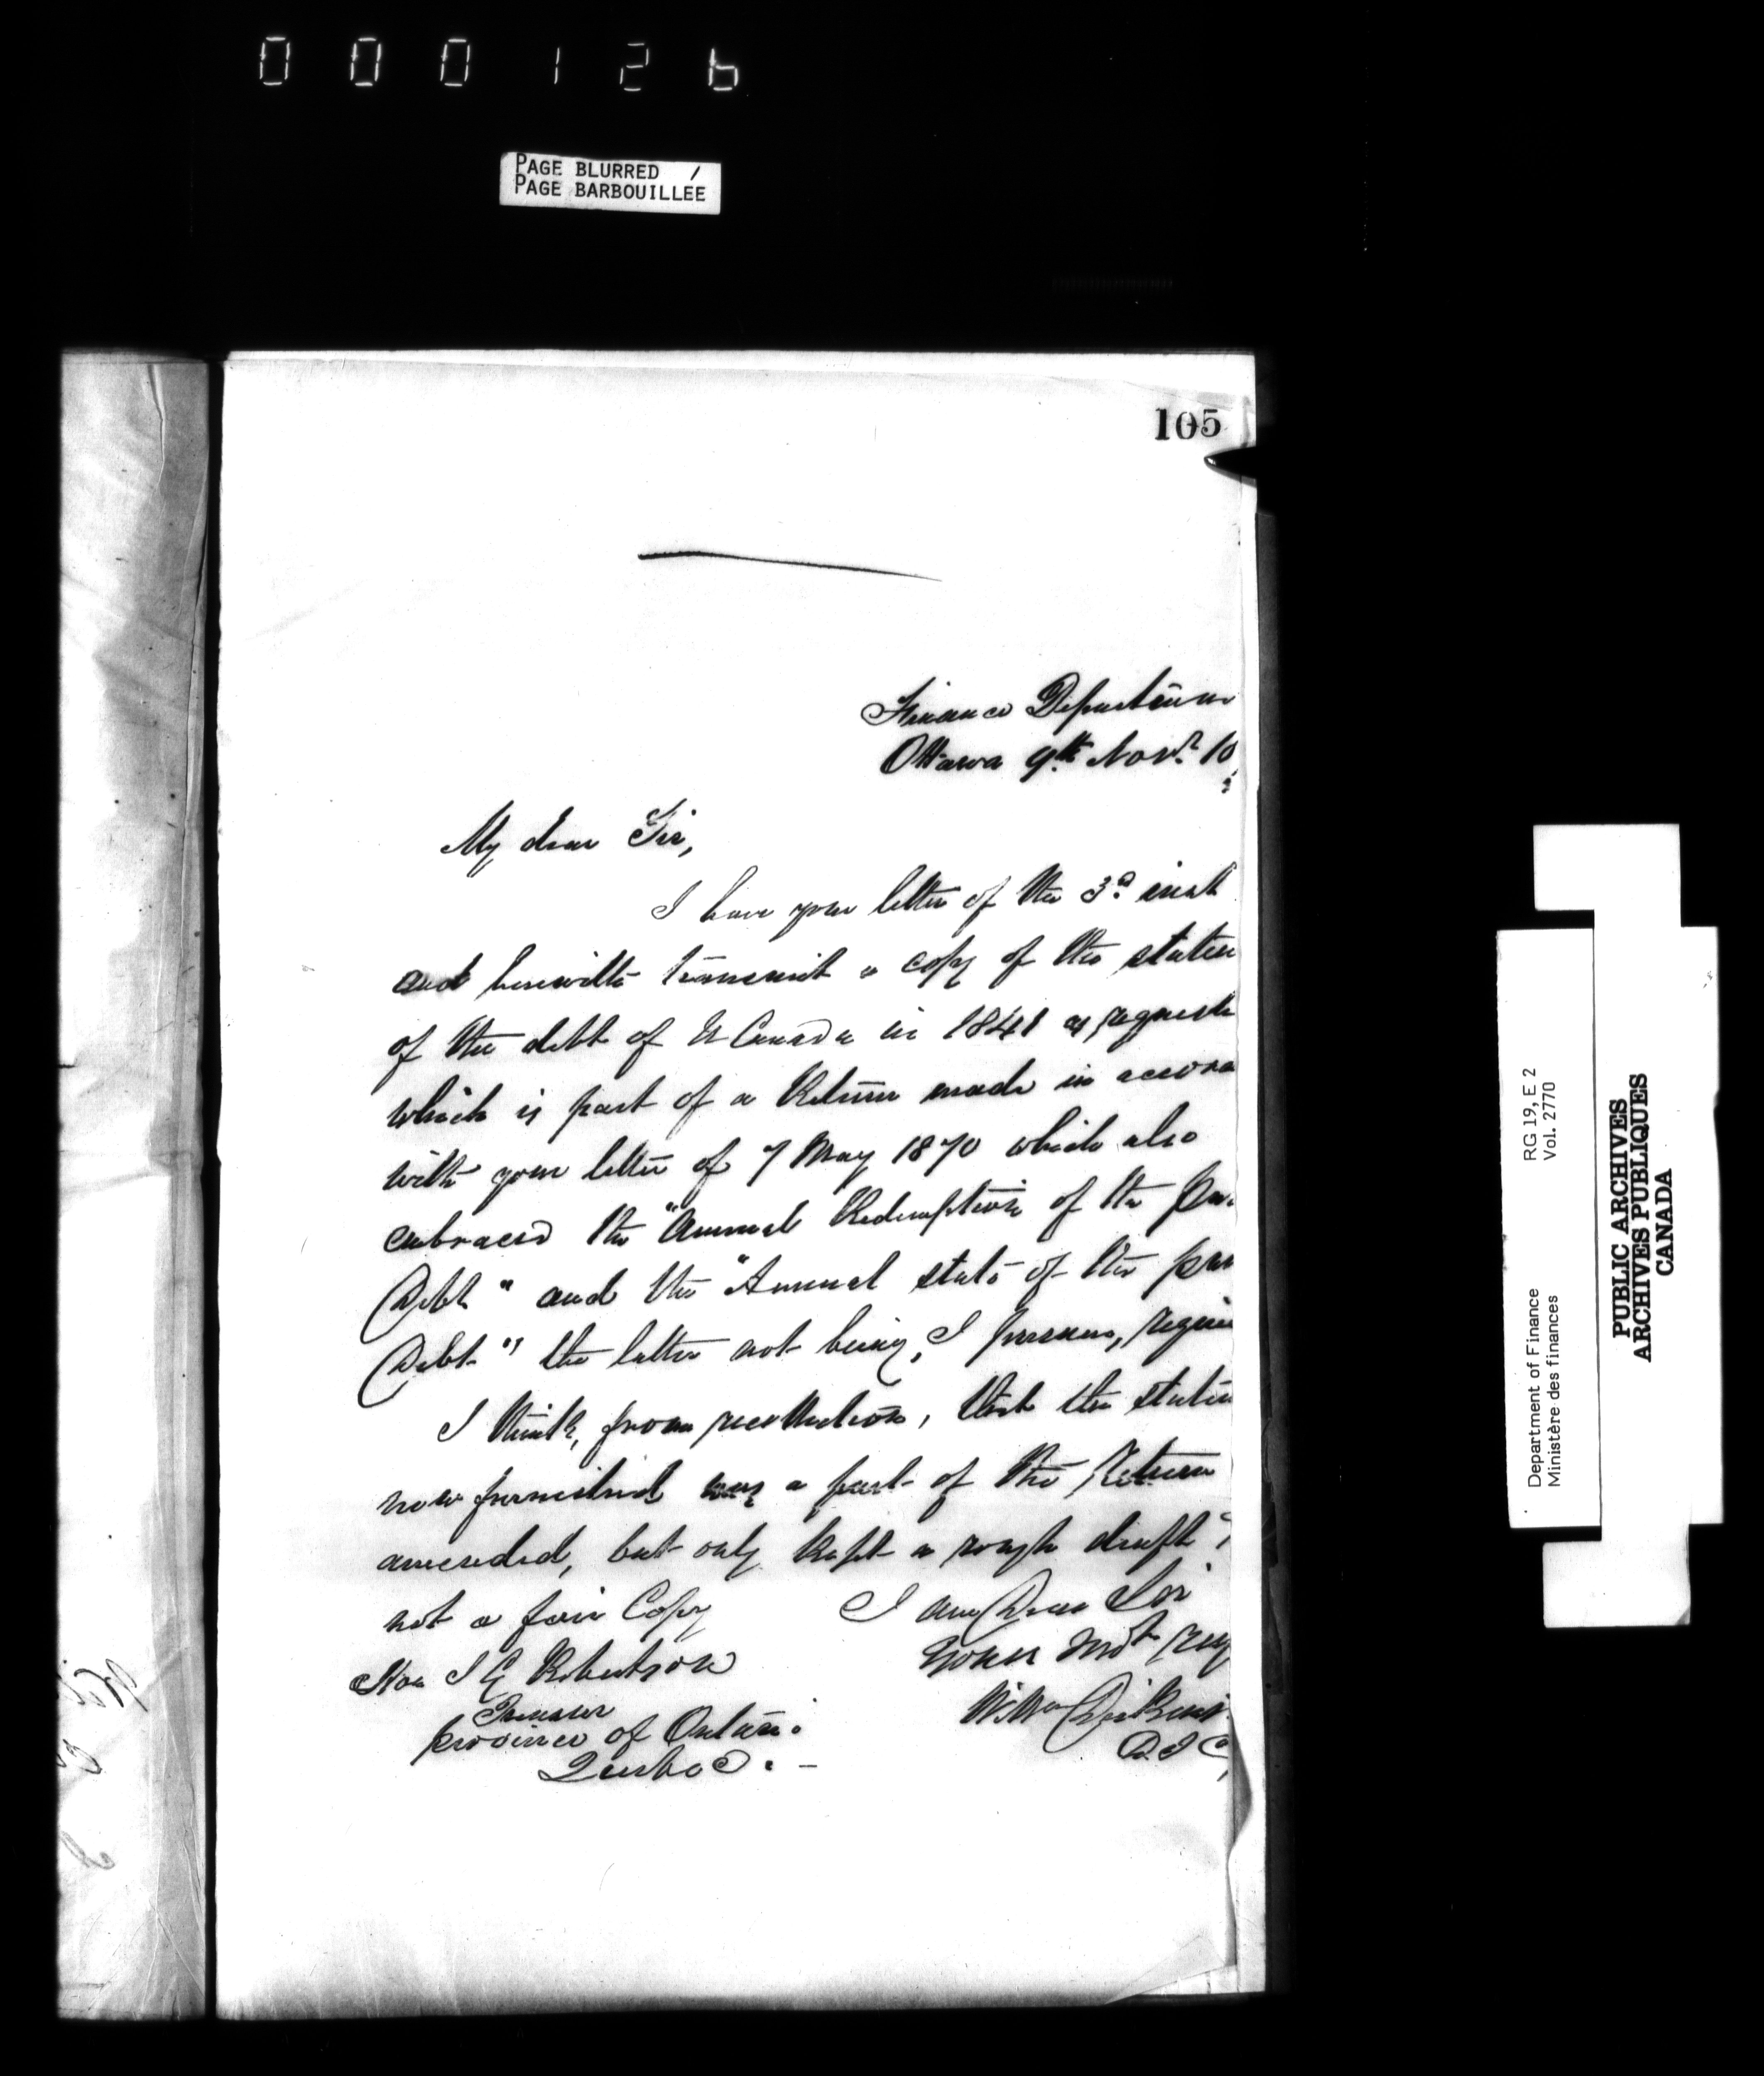 000126
PAGE BLURRED /
PAGE BARBOUILLÉE
105
Finance Departem
Ottawa 9th Novr. 18
My dear Sir,
I have your letter of the 3d. inst
and herewith transmit a copy of the statem
of the debt of U Canada in 1841 as requeste
which is part of a Return made in accorda
with your letter of 7 May 1870 which also
embraced the "Annual Redemption of the
Debt" and the "Annual state of the
Debt" the latter not being, I presume, requir
I think, from recollection, that the statem
now furnished was a part of the Return
amended, but only kept a rough draft
not a fair Copy
I am Dear Sir
Yours mot. resp
Hon J G Robertson
Treasurer
province of Ontario
Quebec. -
Wm Dickins
D. I G
Department of Finance
Ministère des finances
RG 19, E 2
Vol. 2770
PUBLIC ARCHIVES
ARCHIVES PUBLIQUES
CANADA